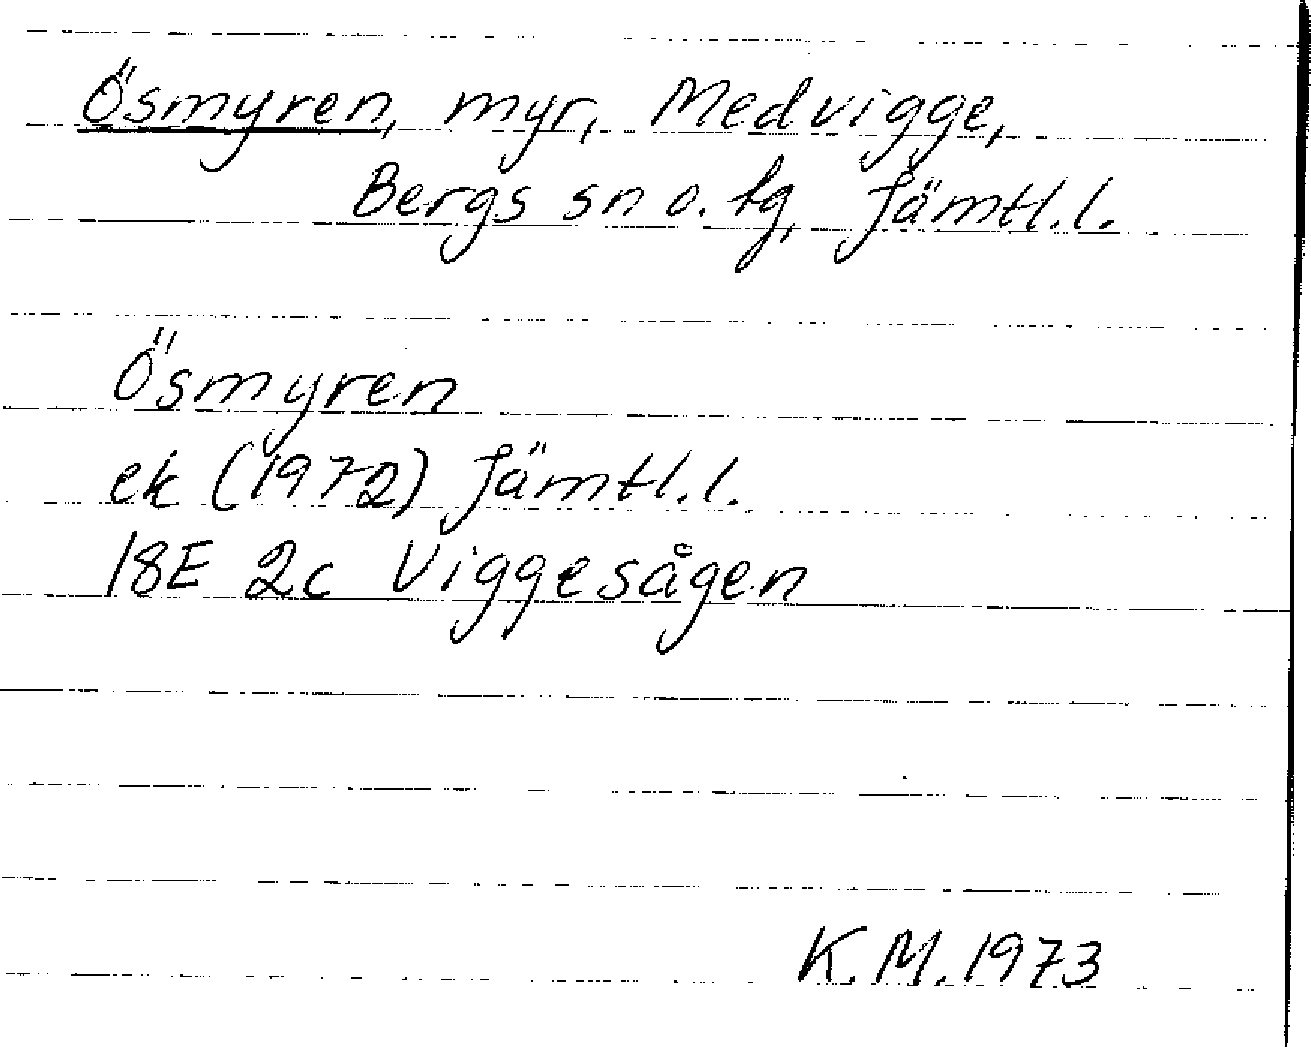 Ösmyren, myr, Medvigge,
Bergs sn o. tg, Jämtl. l.
Ösmyren
ek (1972) Jämtl. l.
18E 2c Viggesågen
K. M. 1973